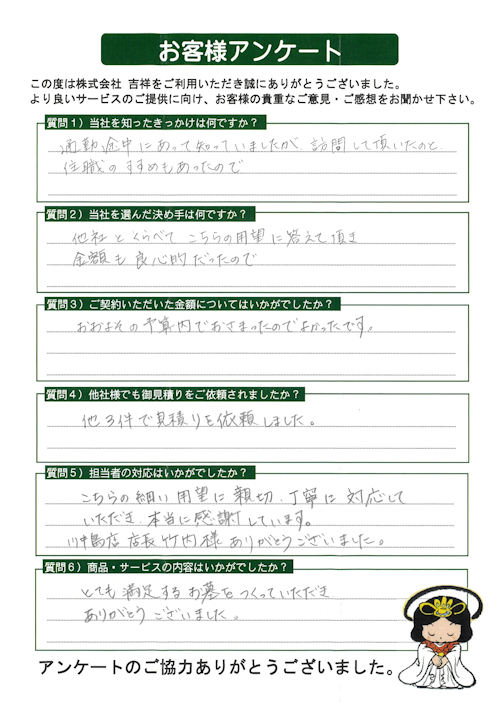 お客様アンケート
この度は株式会社 吉祥をご利用いただき誠にありがとうございました。
より良いサービスのご提供に向け、お客様の貴重なご意見・ご感想をお聞かせ下さい。
質問1）当社を知ったきっかけは何ですか？
通勤途中にあって知っていましたが、訪問して頂いたのと、
住職のすすめもあったので
質問2）当社を選んだ決め手は何ですか？
他社とくらべてこちらの用望に答えて頂き
金額も良心的だったので
質問3）ご契約いただいた金額についてはいかがでしたか？
おおよその予算内でおさまったのでよかったです。
質問4）他社様でも御見積りをご依頼されましたか？
他3件で見積りを依頼しました。
質問5）担当者の対応はいかがでしたか？
こちらの細い用望に親切、丁寧に対応して
いただき、本当に感謝しています。
川中島店 店長 竹内様 ありがとうございました。
質問6）商品・サービスの内容はいかがでしたか？
とても満足するお墓をつくっていただき
ありがとうございました。
アンケートのご協力ありがとうございました。